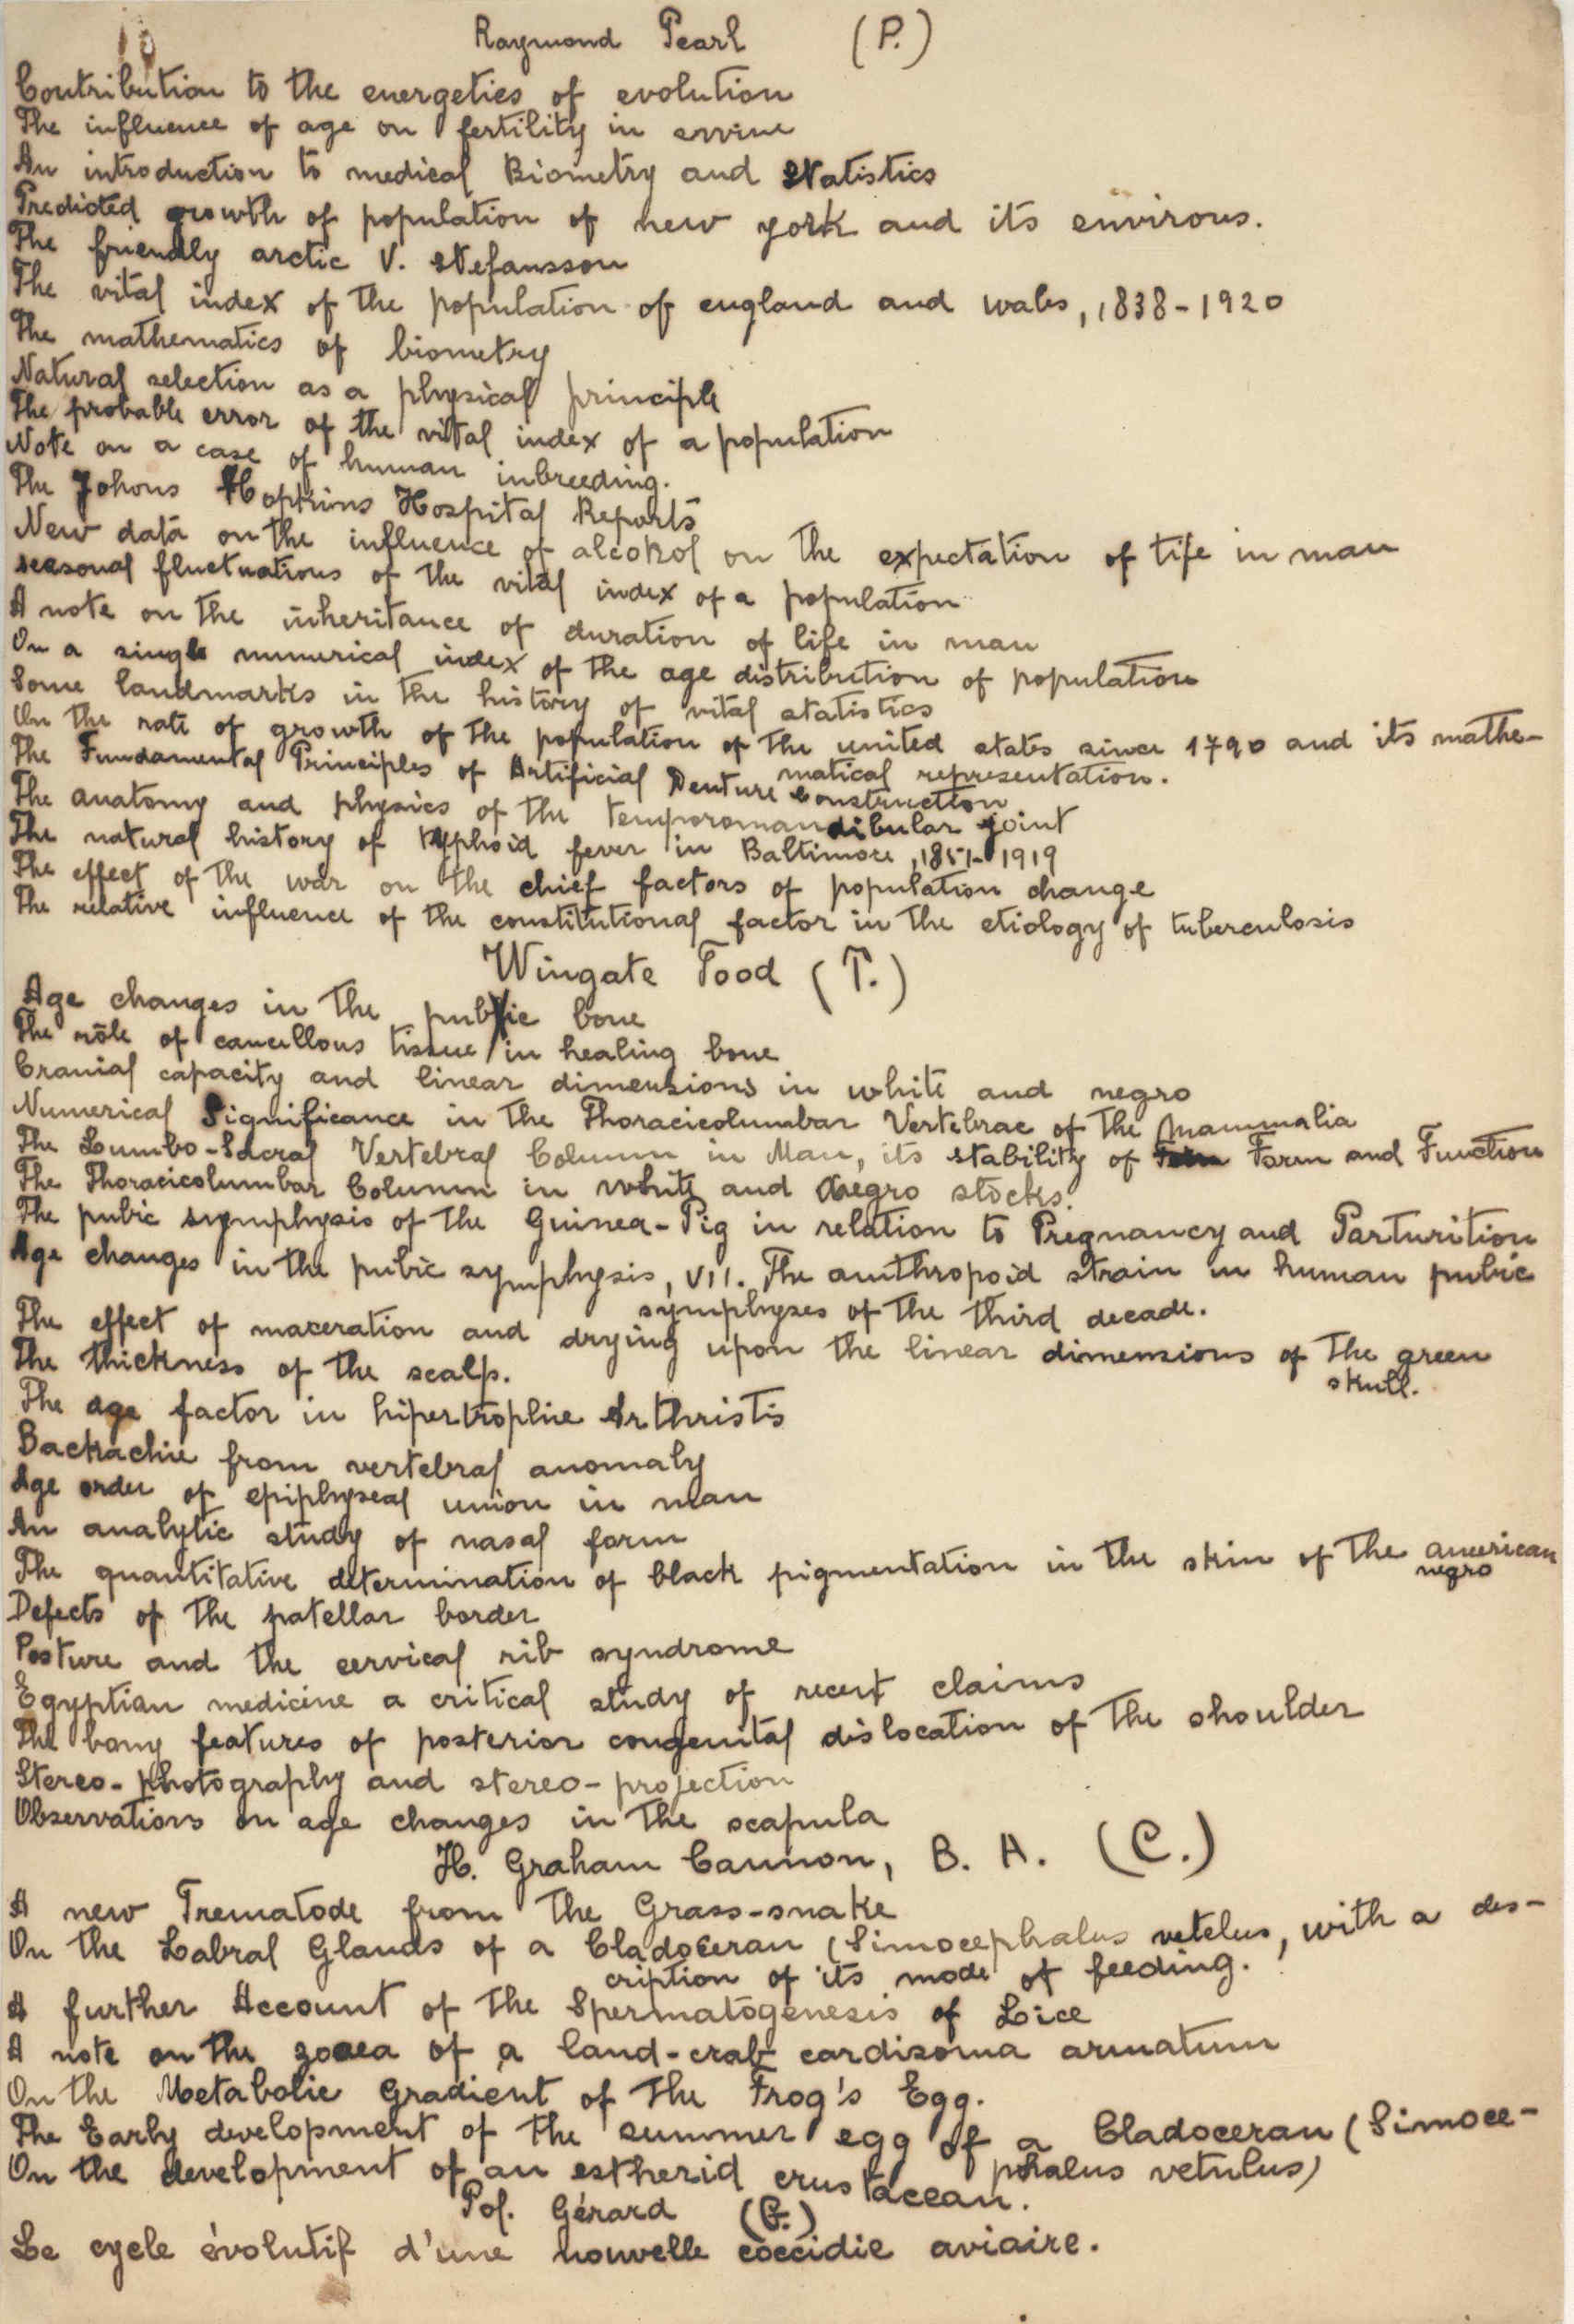 Raymond Pearl (P.)
Contribution to the energetics of evolution
The influence of age on fertility in swine
An introduction to medical Biometry and Statistics
Predicted growth of population of new york and its environs.
The friendly arctic V. Stefansson
The vital index of the population of england and wales, 1838-1920
The mathematics of biometry
Natural selection as a physical principle
The probable error of the vital index of a population
Note on a case of human inbreeding.
The Johons Hopkins Hospital Reports
New data on the influence of alcohol on the expectation of life in man
seasonal fluctuations of the vital index of a population
A note on the inheritance of duration of life in man
On a single numerical index of the age distribution of population
Some landmarks in the history of vital statistics
On the rate of growth of the population of the united states since 1790 and its mathe-
matical representation.
The Fundamental Principles of Artificial Denture Construction
The anatomy and physics of the temporomandibular joint
The natural history of typhoid fever in Baltimore, 1851-1919
The effect of the war on the chief factors of population change
The relative influence of the constitutional factor in the etiology of tuberculosis
Wingate Tood (T.)
Age changes in the pubic bone
The rôle of cancellous tissue in healing bone
Cranial capacity and linear dimensions in white and negro
Numerical Significance in the Thoracicolumbar Vertebrae of the Mammalia
The Lumbo-Sacral Vertebral Column in Man, its stability of Form and Function
The Thoracicolumbar Column in white and negro stocks.
The pubic symphysis of the Guinea-Pig in relation to Pregnancy and Parturition
Age changes in the pubic symphysis, VII. The anthropoid strain in human pubic
symphyses of the third decade.
The effect of maceration and drying upon the linear dimensions of the green
skull.
The thickness of the scalp.
The age factor in hipertrophie Arthristis
Backachie from vertebral anomaly
Age order of epiphyseal union in man
An analytic study of nasal form
The quantitative determination of black pigmentation in the skin of the american
negro
Defects of the patellar border
Posture and the cervical rib syndrome
Egyptian medicine a critical study of recent claims
The bony features of posterior congenital dislocation of the shoulder
Stereo-photography and stereo-projection
Observations on age changes in the scapula
H. Graham Cannon, B. A. (C.)
A new Trematode from the Grass-snake
On the Labral Glands of a Cladoceran (Simocephalus vetelus, with a des-
cription of its mode of feeding.
A further Account of the Spermatogenesis of Lice
A note on the zoaea of a land-crab cardisoma armatum
On the Metabolic Gradient of the Frog's Egg.
The Early development of the summer egg of a Cladoceran (Simoce-
phalus vetulus)
On the development of an estherid crustacean.
Pof. Gérard (G.)
Le cycle évolutif d'une nouvelle coccidie aviaire.